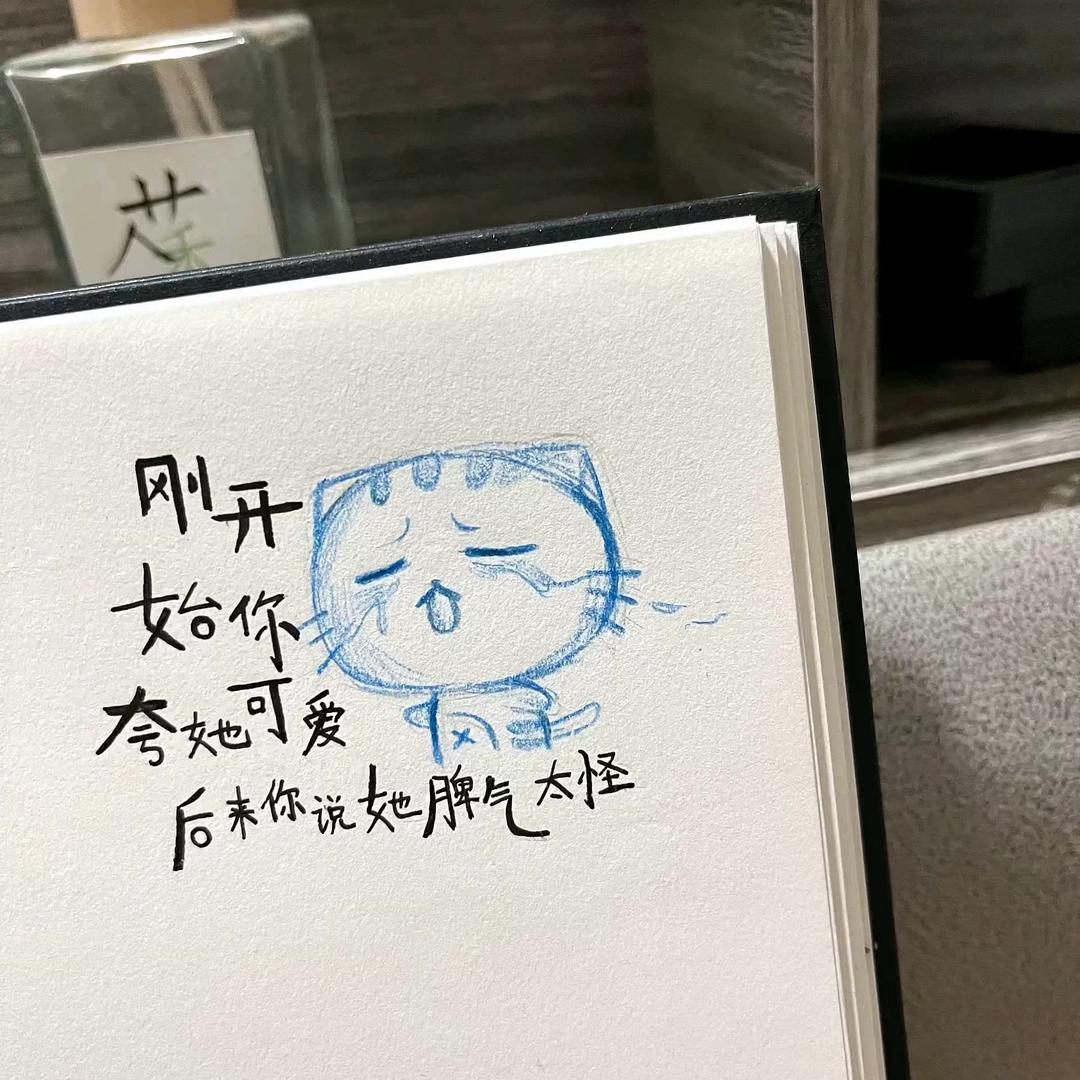 茶
刚开
始你
夸她可爱
后来你说她脾气太怪